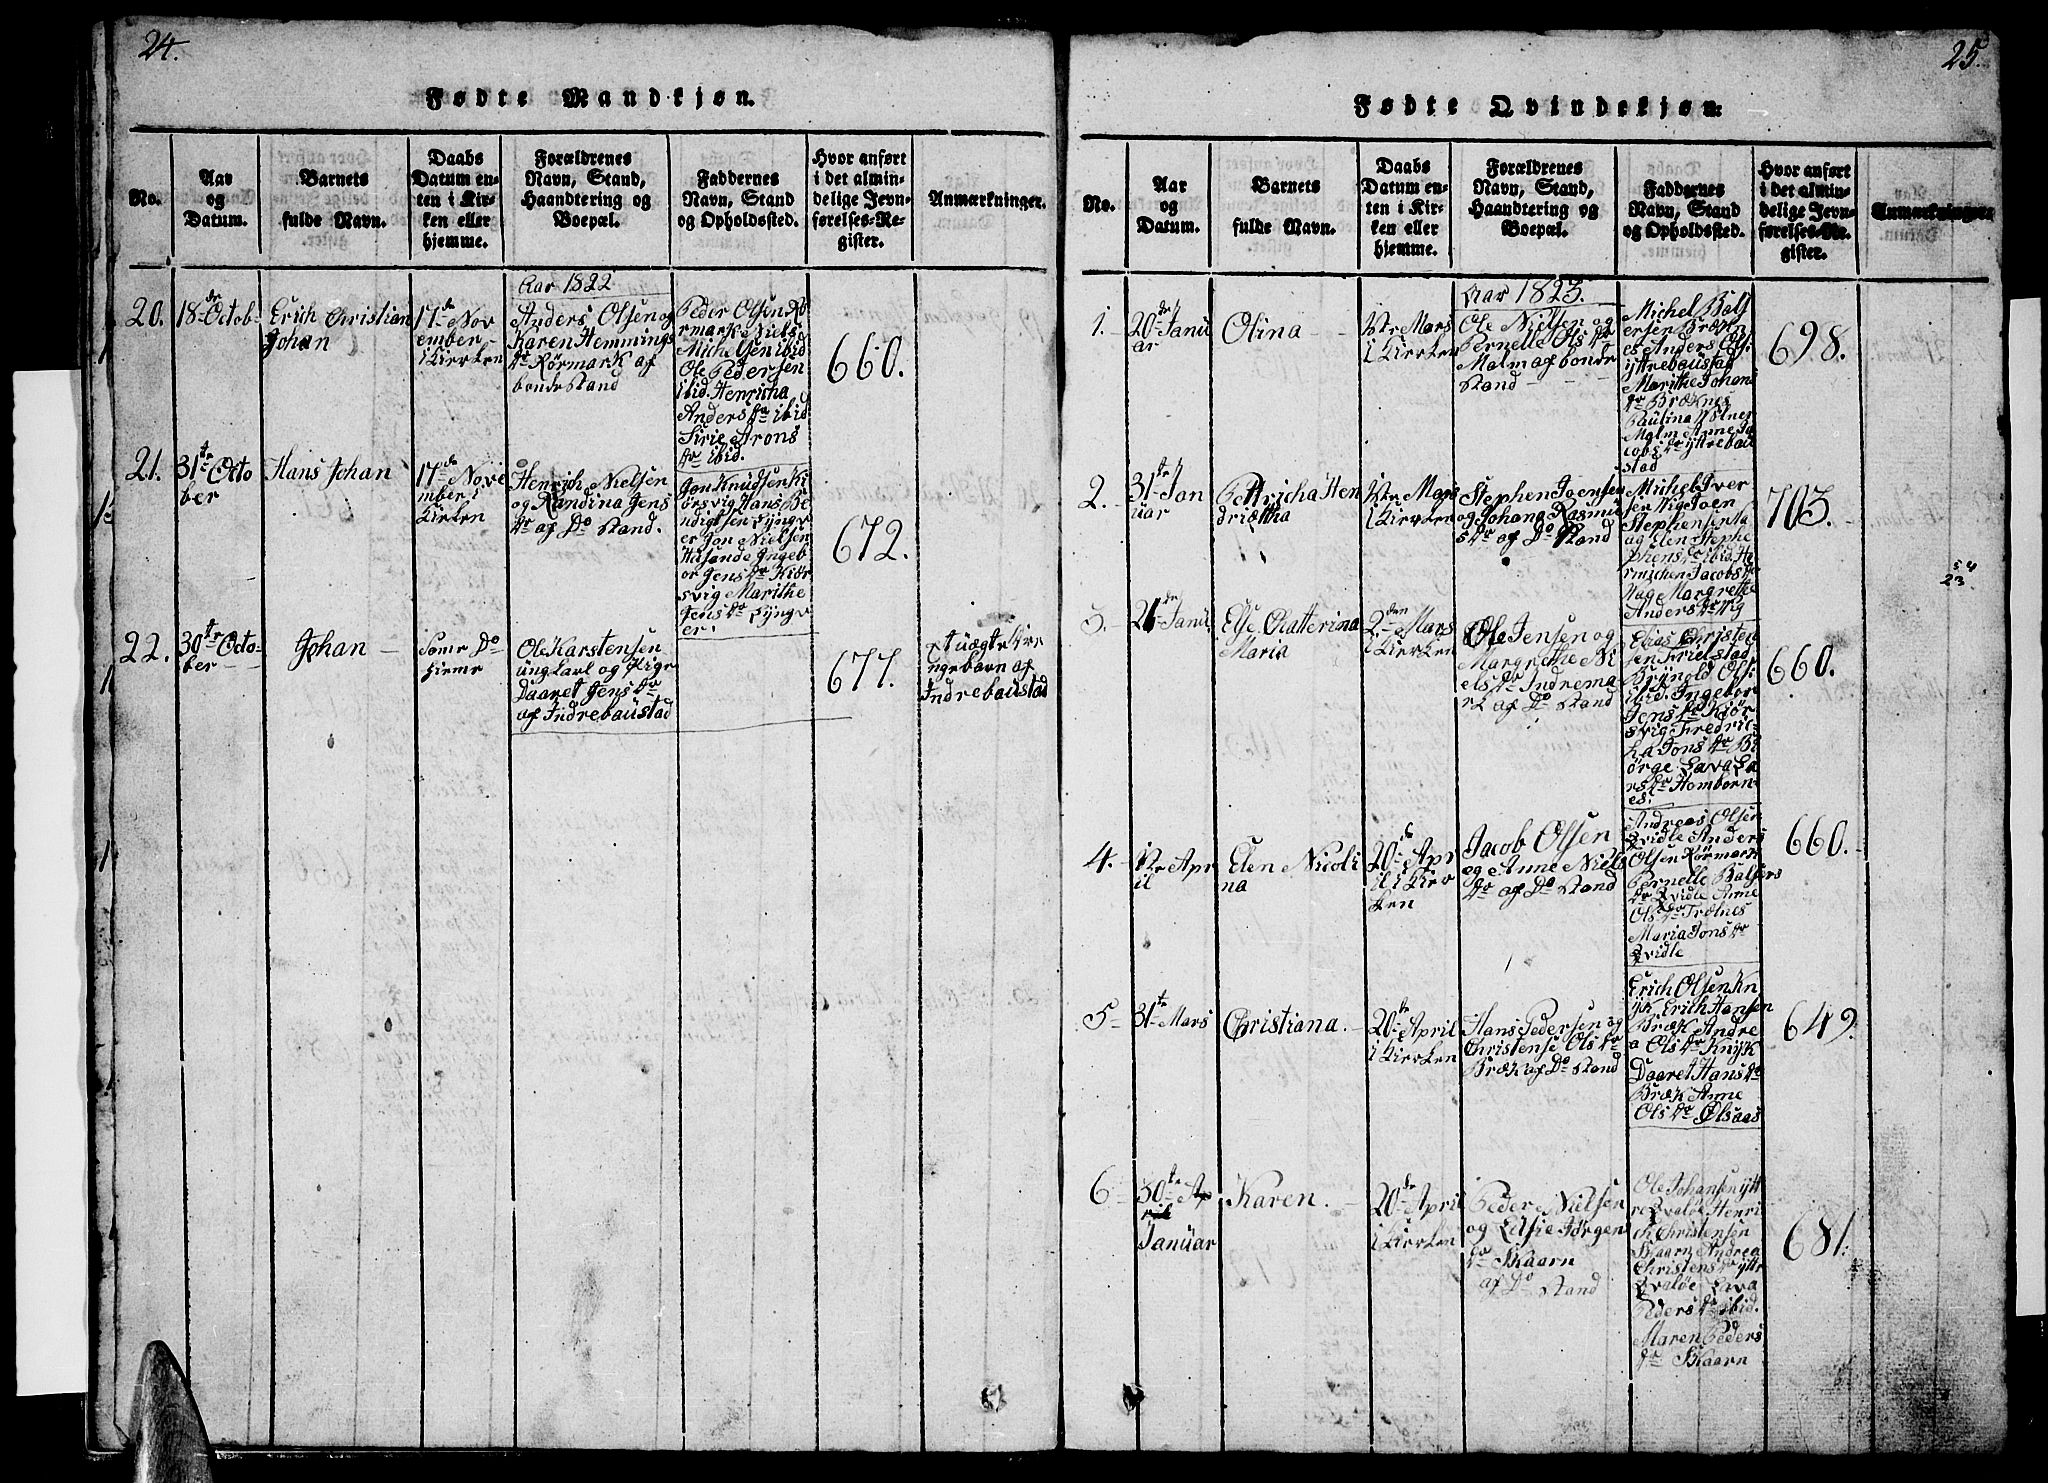 24.
Fødte Mandkjøn.
No.
Aar
og
Datum.
Barnets
fulde Navn.
Daabs
Datum en-
ten i Kir-
ken eller
hjemme.
Forældrenes
Navn, Stand,
Haandtering og
Boepæl.
Faddernes
Navn, Stand
og Opholdssted.
Hvor anført
i det almin-
delige Jevn-
førelses-Re-
gister.
Anmærkninger.
Aar 1822
20.
18de Octob-
Erich Christian
Johan
17de Nov
ember
i Kirken
Anders Olsen og
Karen Hemmings
dr Rörmark af
bondestand
Peder Olsen Rö
rmark Niels
Michelsen ibid
Ole Pedersen
ibid. Henricha
Anders dr ibid
Sirie Arons
dr ibid.
660.
21.
31te Octo
ber
Hans Johan
17de Nove
mber i
Kirken
Henrich Nielsen
og Randina Jens
dr af Do Stand.
Jon Knudsen Ki
örsvig Hans Be
ndigtsen Lyngv
er Jon Nielsen
Husande Ingeb
or Jens dr Kiör
svig Marithe
Jens dr Lyngv
er.
672.
22.
30te Octo-
ber
Johan
Some Do
hieme
Ole Karstensen
ung karl og Pige
Daaret Jens dr
af Indrebaustad
677.
et uægte Dre
ngebarn af
Indrebaustad
25.
Fødte Qvindekjøn.
No.
Aar
og
Datum.
Barnets
fulde Navn.
Daabs
Datum en-
ten i Kir-
ken eller
hjemme.
Forældrenes
Navn, Stand,
Haandtering og
Boepæl.
Faddernes
Navn, Stand
og Opholdssted.
Hvor anført
i det almin-
delige Jevn-
førelses-Re-
gister.
Anmærkninger.
Aar 1823.
1.
20de Janu
ar
Olina
Mars
i Kirken
Ole Nielsen og
Pernelle Ols dr
Malm af bonde
Stand
Michel Balt
ersen Brækn
es Anders Ols:
yttrebaustad
Marithe Johans
dr Bræknes
Paulina
Malm Anne Ja
cobs dr yttrebau
stad
698.
2.
31te Jan
uar
Pettricha Hen
driættha
Mars
i Kirken
Stephen Joensen
og Johana Rasmu
s dr af Do Stand
Michel Iver
sen Vig Joen
Stephensen
Elen Stephe
phens dr ibid Ha
rmichen Jacobs dr
Margrethe
Anders dr Vig
703.
54
23
3.
Janu.
Else Catterina
Maria
2den Mars
i Kirken
Ole Jensen og
Margrethe Ni
els dr Indrema
rk af Do Stand
Elias Christen
sen Trielstad
Brynold Ols:
ibid. Ingebor
Jens dr Kiör
svig Fredric-
ka Jons dr Bi
örge Lava La
rs dr Homborn-
es.
660.
4.
April
Elen Nicoli
na
20de Apr
il i Kir
ken
Jacob Olsen
og Anne Niels
dr af Do Stand
Andreas Olsen
Qvidle Anders
Olsen Rörmark
Pernelle Balsers
dr Qvidle Anne
Ols dr Trælnes
Maria Jons dr
Qvidle
660.
5
31te Mars
Christiana.
20de April
i Kirken
Hans Pedersen og
Christense Ols dr
Bræk af Do Stand
Erich Olsen Kn
yk Erich Hansen
Bræk Andre
a Ols dr Knyk
Daaret Hans dr
Bræk Anne
Ols dr Olsaas
649.
6
30te
Januar
Karen.
20de April
i Kirken
Peder Nielsen
og Elsie Jörgen
dr Skaarn
af Do Stand
Ole Johansen ytt
re Qvalöe Henri
ch Christensen
Skaarn Andrea
Christens dr yttr
Qvalöe Lava
Peders dr ibid.
Maren Peders
dr Skaarn
681.